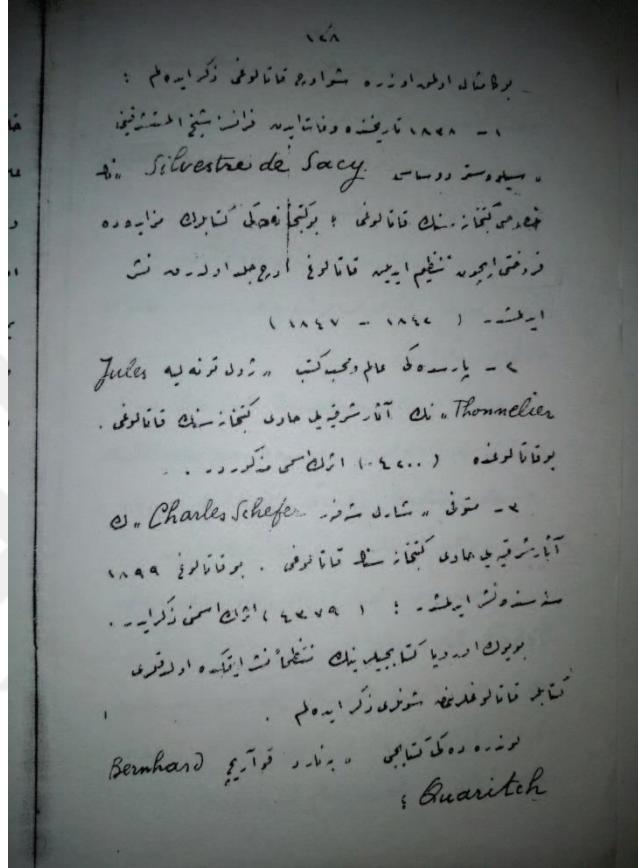 ١٣٨
بوكا مثال اولمق اوزره شو اوچ قاتالوغی ذكر ایده‌لم :
١ – ١٨٣٨ تاریخنده وفات ایدن فرانسز شیخ المستشرقینی
« سیلوستر دوساسی Silvestre de Sacy » نك
خصوصی كتبخانه‌سنك قاتالوغی ؛ بو كتبخانه‌ده‌كی كتابلرك مزایده‌ده
فروختی ایچون تنظیم ایدیلن قاتالوغ اوچ جلد اوله‌رق نشر
ایدلمشدر ( ١٨٤٢ – ١٨٤٧ )
٢ – پارسده‌كی عالم و محب كتب « ژول تونه‌لیه Jules
Thonnelier » نك آثار شرقیه‌یی حاوی كتبخانه‌سنك قاتالوغی .
بو قاتالوغده ( ٤٢٠٠ ) اثرك اسمی مذكوردر .
٣ – متوفی « شارل شفر Charles Schefer » ك
آثار شرقیه‌یی حاوی كتبخانه‌سنك قاتالوغی . بو قاتالوغ ١٨٩٩
سنه‌سنده نشر ایدلمشدر ؛ ( ٤٣٧٩ ) اثرك اسمنی ذكر ایدر .
بویوك اوروپا كتابجیلرینك منتظماً نشر ایتمكده اولدقلری
كتابلر قاتالوغلرندن شونلری ذكر ایده‌لم .
لوندره‌ده‌كی كتابجی « برنارد قواریچ Bernhard
Quaritch ؛